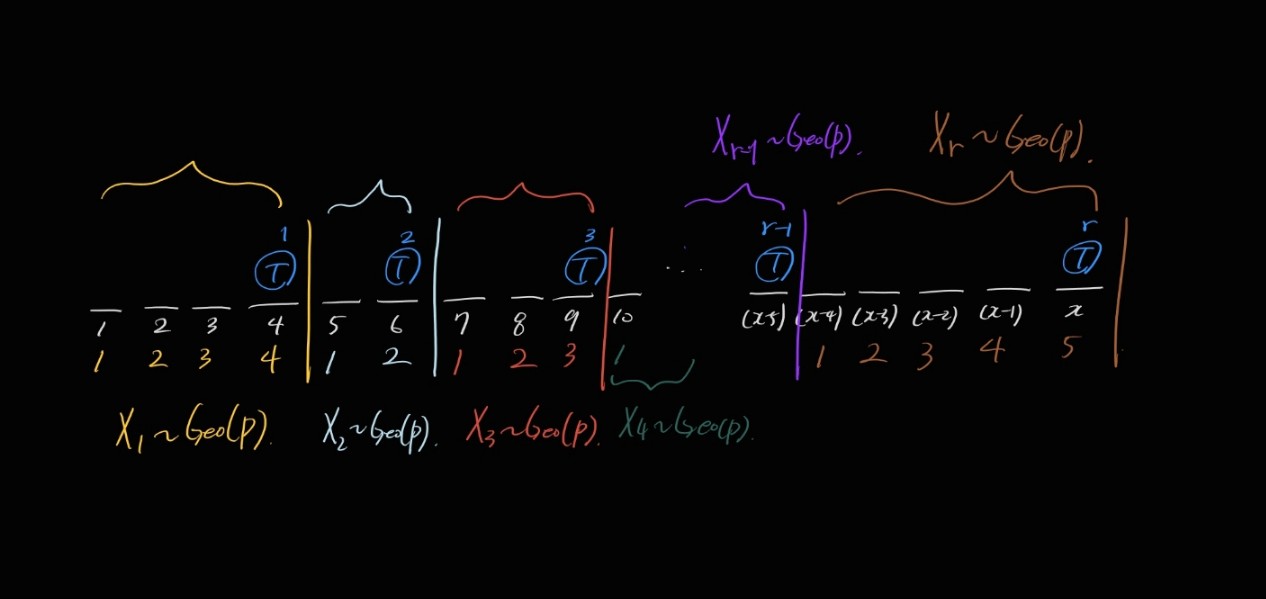 X_{r-1} ~ Geo(p). X_r ~ Geo(p).
1 2 3 r-1 r
T T T ... T T
1 2 3 4 5 6 7 8 9 10 (x-5) (x-4) (x-3) (x-2) (x-1) x
1 2 3 4 1 2 1 2 3 1 1 2 3 4 5
X_1 ~ Geo(p). X_2 ~ Geo(p). X_3 ~ Geo(p). X_4 ~ Geo(p).